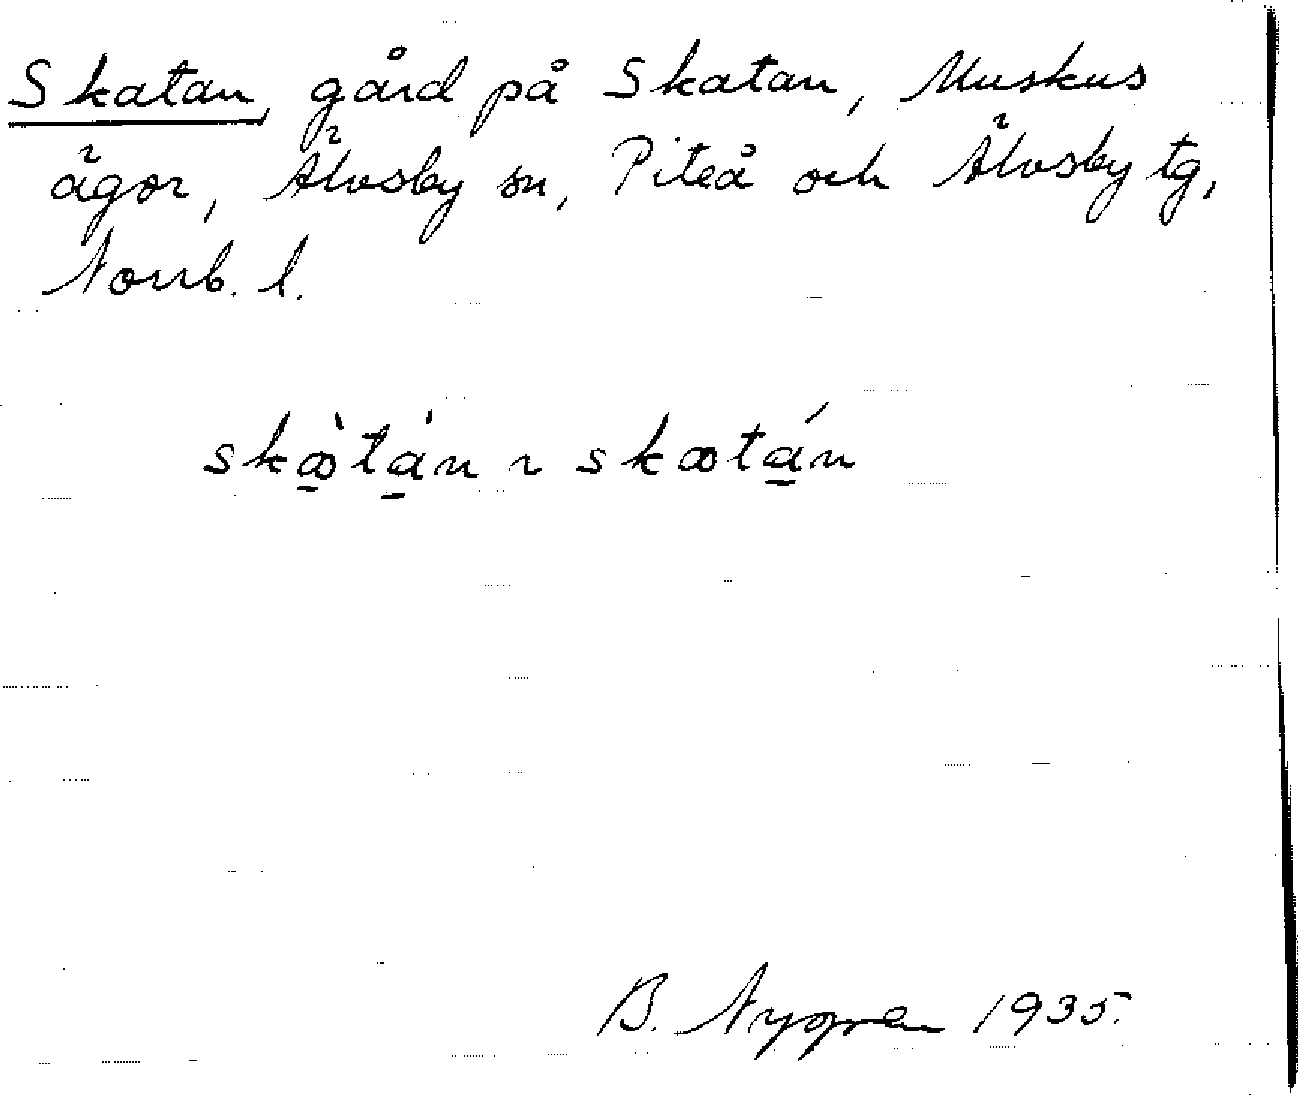 Skatan, gård på Skatan, Muskus
ägor, Älvsby sn, Piteå och Älvsby tg,
Norrb. l.
skæ̠̀ta̠̍n ~ skætá̠n
B. Nygren 1935.